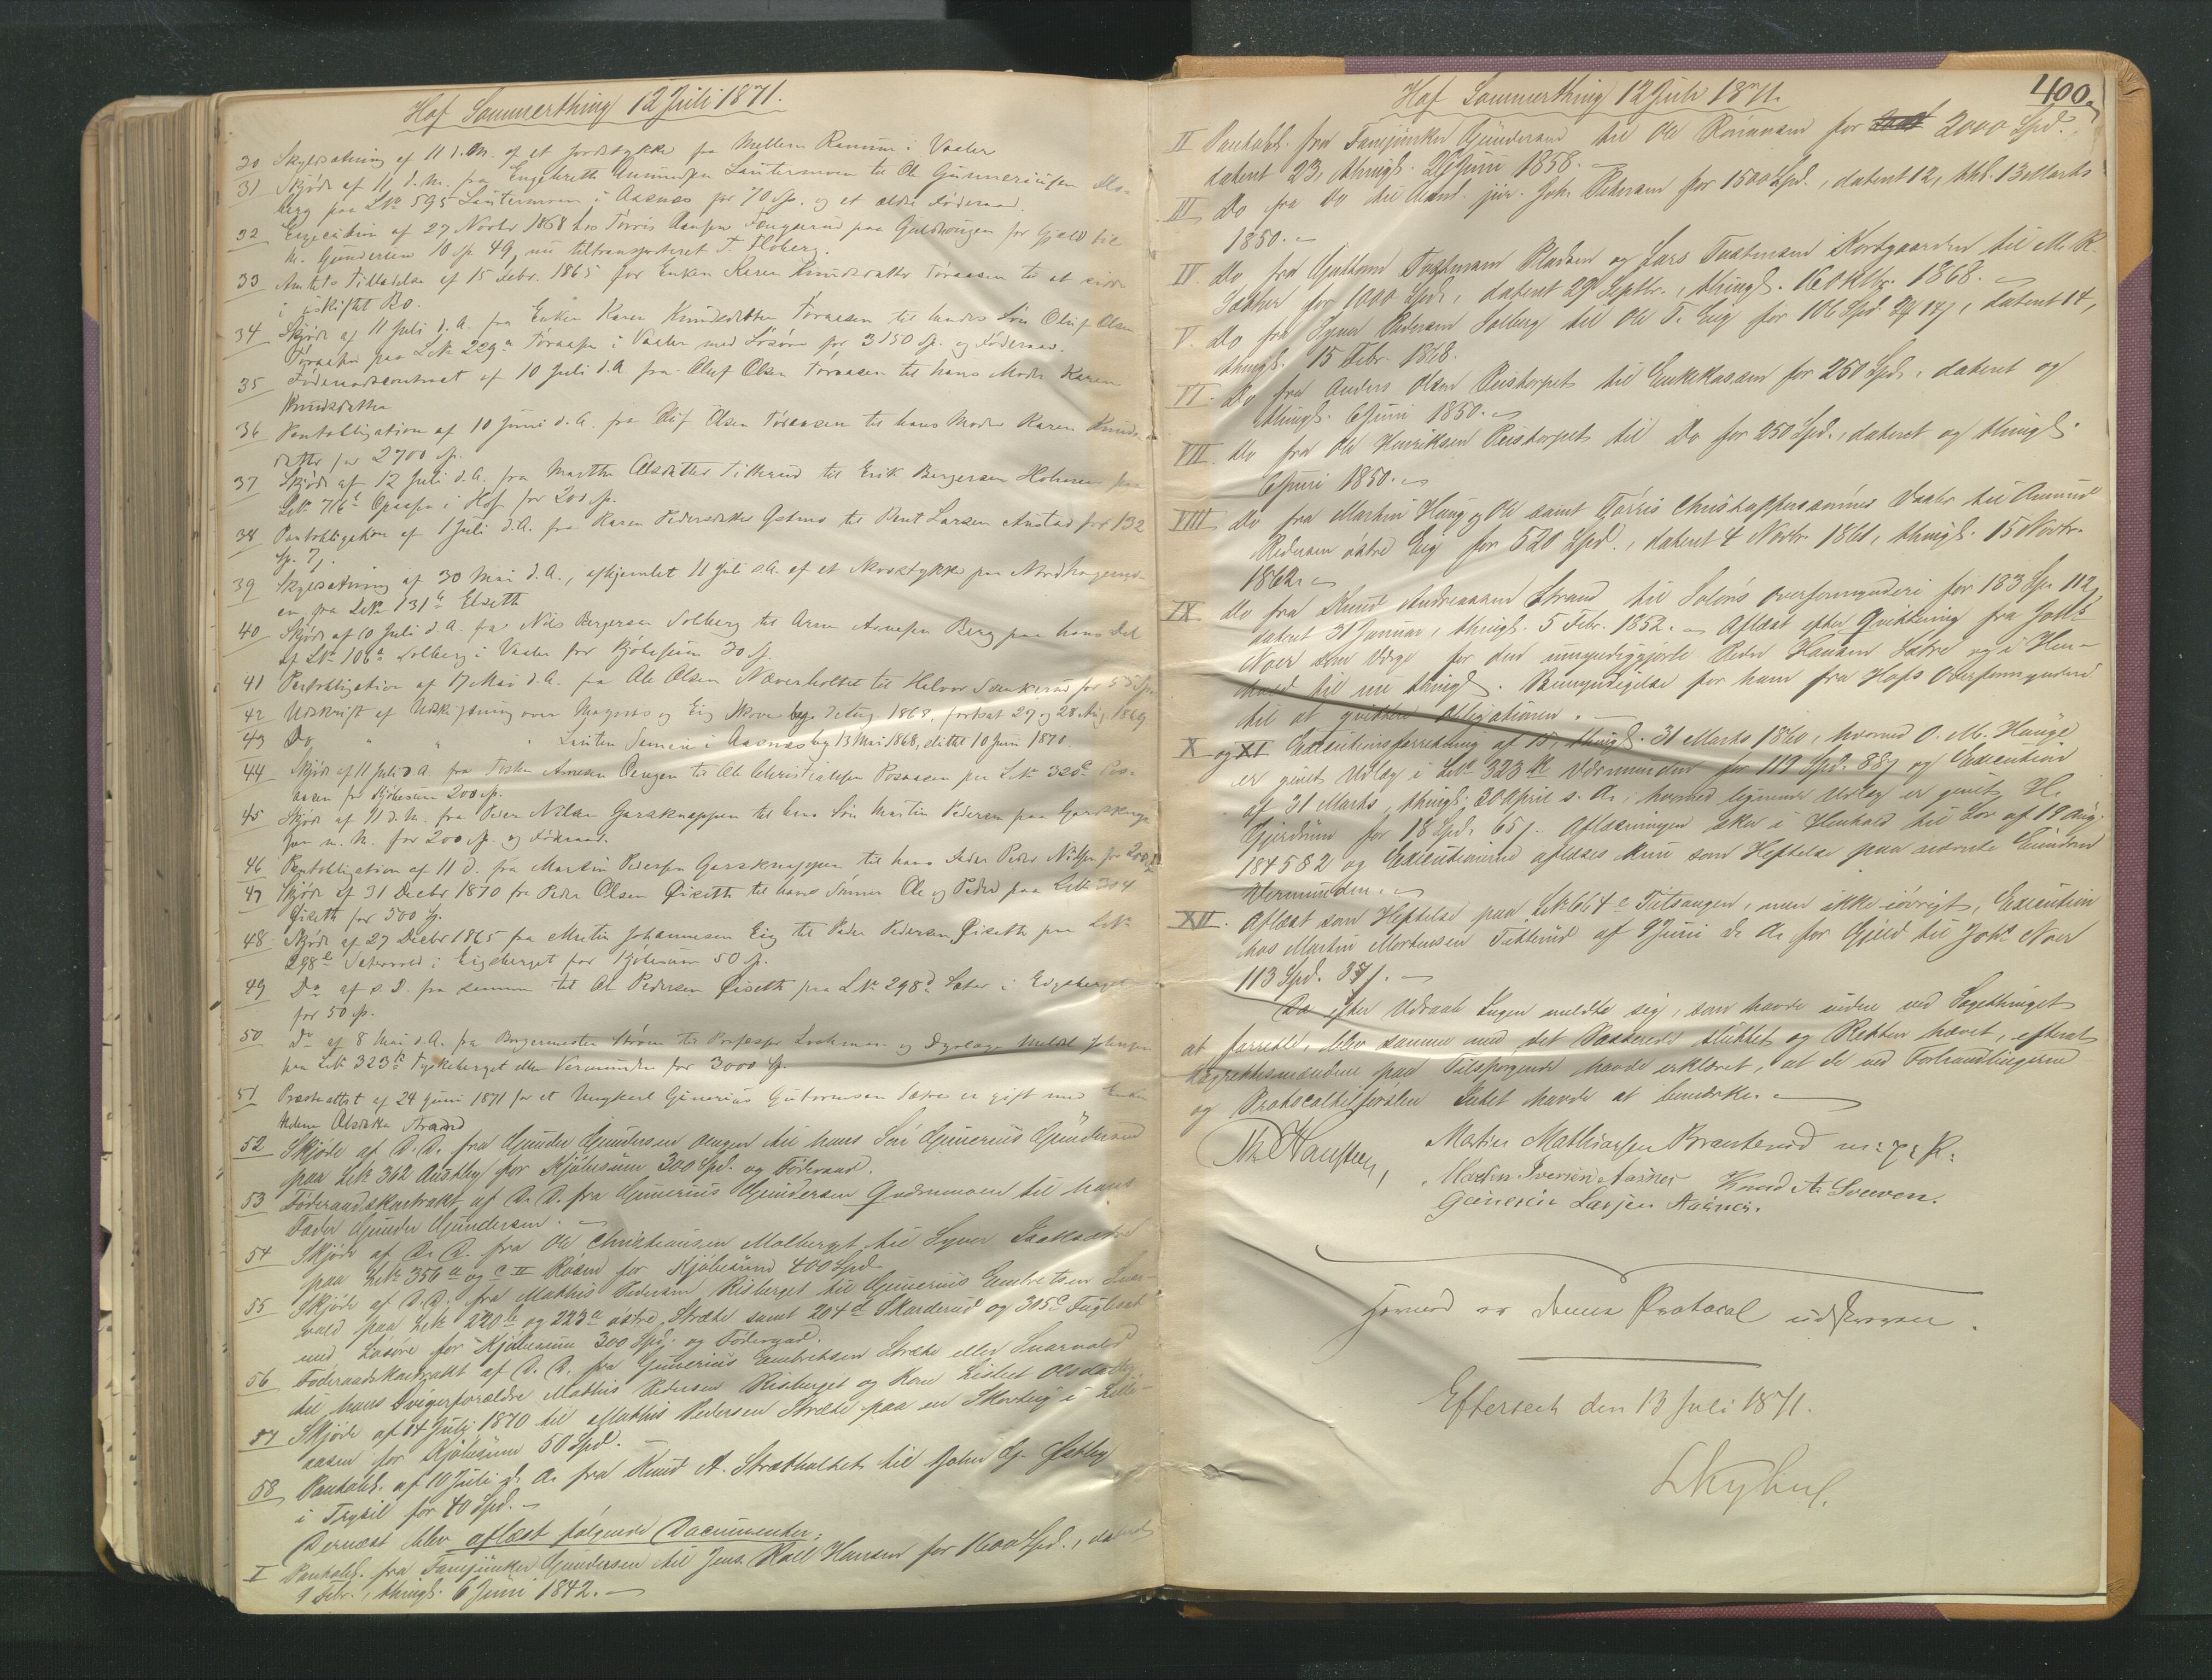 Hof Sommerthing 12 Juli 1871.
30 Skyldsætning af 11 d. M. af et Jordstykke fra Mellem Ranum i Vaaler
31 Skjøde af 11 d. M. fra Engebreth Amundsen Lautermoen til Ole Gunneriusen
berg paa LNr 595 Lautermoen i Aasnes for 70 Sp. og et ældre Føderaad.
32 Execution af 27 Novbr 1868 hos Torris Hansen paa Guldhougen for Gjæld til
M. Gundersen 10 Sp. 49, nu tiltransporteret T. Floberg.
33 Amtets Tilladelse af 15 Febr. 1865 for Enken Karen Knudsdatter Toraasen til at sidde
i uskiftet Bo.
34 Skjøde af 11 Juli d. A. fra Enken Karen Knudsdatter Toraasen til hendes Søn Oluf Olsen
Toraasen paa LNr 229a Toraasen i Vaaler med Løsøre for 3150 Sp. og Føderaad.
35 Føderaadscontract af 10 Juli d. A. fra Oluf Olsen Toraasen til hans Moder Karen
Knudsdatter
36 Pantobligation af 10 Juni d. A. fra Oluf Olsen Toraasen til hans Moder Karen Knuds-
datter for 2700 Sp.
37 Skjøde af 12 Juli d. A. fra Marthe Olsdatter Tillerud til Erik Bergersen Holmen paa
LNr 716 Opaasen i Hof for 200 Sp.
38 Pantobligation af 1 Juli d. A. fra Karen Pedersdatter til Bent Larsen Austad for 132
Sp. 7 ſ.
39 Skyldsætning af 30 Mai d. A., afhjemlet 11 Juli d. A. af et Skovstykke paa Nordhagemo-
en, fra LNr 131a Elseth
40 Skjøde af 10 Juli d. A. fra Nils Bergersen Solberg til Arne Arnesen Berg paa hans Del
af LNr 106a Solberg i Vaaler for Kjøbesum 30 Sp.
41 Pantobligation af 17 Mai d. A. fra Ole Olsen Næverholtet til Halvor Sønkerud for
42 Udskrift af Udskiftning over og Eig Skove beg. 1868, fortsat 27 og 28 Aug. 1869
43 Do " " " Lauten i Aasnes beg. 13 Mai 1868, sluttet 10 Juni 1870.
44 Skjøde af 11 Juli d. A. fra Arnesen Oengen til Ole Christiansen Posaasen paa LNr 320 Pos-
aasen for Kjøbesum 200 Sp.
45 Skjøde af 11 d. M. fra Peder Nilsen Garsknappen til hans Søn Martin Pedersen paa
for 200 Sp. og Føderaad.
46 Pantobligation af 11 d. fra Martin Pedersen Garsknappen til hans Fader Peder Nilsen for 200
47 Skjøde af 31 Decbr 1870 fra Peder Olsen Øiseth til hans Sønner Ole og Peder paa LNr 304
Øiseth for 500 Sp.
48 Skjøde af 27 Decbr 1865 fra Martin Johannesen Eig til Peder Pedersen Øiseth paa LNr
298e i Eigsberget for Kjøbesum 50 Sp.
49 Do af s. D. fra samme til Ole Pedersen Øiseth paa LNr 298d Sæter i Eigsberget
for 50 Sp.
50 Do af 8 Mai d. A. fra Borgermester Strøm til Professor Lochman og Dyrlæge
paa LNr 323k Tyskeberget eller Vermunden for 3000 Sp.
51 Præsteattest af 24 Juni 1871 for at Ungkarl Gunerius Guttormsen Sætre er gift med Enken
Helene Olsdatter Strand
52 Skjøde af D. D. fra Gunder Gundersen Oengen til hans Søn Gunerius Gundersen
paa LNr 362 Austby for Kjøbesum 300 Spd. og Føderaad.
53 Føderaadskontrakt af D. D. fra Gunerius Gundersen til hans
Fader Gunder Gundersen.
54 Skjøde af D. D. fra Ole Christiansen Molberget til Syver Isaksæter
paa LNr 356a og c II Rosen for Kjøbesum 400 Spd.
55 Skjøde af D. D. fra Mathis Pedersen Risberget til Gunerius Embretsen Snar-
vold paa LNr 220b og 223a østre Stræte samt 204d Skarderud og 305c Fugleset
med Løsøre for Kjøbesum 300 Spd. og Føderaad.
56 Føderaadskontrakt af D. D. fra Gunerius Embretsen Stræte eller Snarvold
til hans Svigerforældre Mathis Pedersen Risberget og Kone Lisbet Olsdatter
57 Skjøde af 14 Juli 1870 til Mathis Pedersen Stræte paa en Skovteig i Lille-
aasen for Kjøbesum 50 Spd.
58 Pantobl. af 10 Juli d. A. fra Knud A. Strætholtet til John G. Østby
i Trysil for 40 Spd.
Dernæst blev aflæst følgende Documenter:
I Pantobl. fra Fanejunker Gundersen til Jens Roll Hansen for 1600 Spd., dateret
9 Febr., thingl. 6 Juni 1842.
Hof Sommerthing 12 Juli 1871.
400.
II Pantobl. fra Fanejunker Gundersen til Ole for 2000 Spd.
dateret 23, thingl. 26 Juni 1858.
III Do fra Do til Amd. jur. Joh. Petersen for 1500 Spd., dateret 12, thl. 13 Marts
1850.
IV Do fra Guttorm Tostensen Pladsen og Lars Tostensen Nordgaarden til M. K.
for 1000 Spd., dateret 29 Septbr., thingl. 16 Oktbr. 1868.
V. Do fra Syver Pedersen Solberg til Ole T. Eig for 106 Spd. dateret 14,
thingl. 15 Febr. 1868.
VI. Do fra Anders Olsen Peistorpet til Enkekassen for 250 Spd., dateret og
thingl. 6 Juni 1850.
VII. Do fra Ole Henriksen Peistorpet til Do for 250 Spd., dateret og thingl.
6 Juni 1850.
VIII Do fra Martin Haug og Ole samt Torris Christophersønner til Amund
Pedersen østre Eig for 520 Spd., dateret 4 Novbr 1861, thingl. 15 Novbr.
1862.
IX Do fra Knud Andreassen Strand til Solørs Overformynderi for 183 Sp. 112,
dateret 31 Januar, thingl. 5 Febr. 1852. – Aflæst efter Qvittering fra Joh.
Noer som Værge for den umyndiggjorte Peder Hansen Sætre og i Hen-
hold til nu thingl. Bemyndigelse for ham fra Hofs Overformynderi
til at qvittere Obligationen.
X og XI Executionsforretning af 15, thingl. 31 Marts 1860, hvorved O. M. Hauge
er givet Udlæg i LNr 323k Vermunden for 119 Spd. 88 ſ og Execution
af 31 Marts, thingl. 30 April s. A., hvorved lignende Udlæg er givet H.
Gjerdrum for 18 Spd. 65 ſ. Aflæsningen sker i Henhold til Lov af 19 Aug.
1845 § 2 og Executionerne aflæses kun som Heftelse paa nævnte Eiendom
Vermunden.
XII. Aflæst som Heftelse paa LNr 664c Titsangen, men ikke iøvrigt, Execution
hos Martin Mortensen Tetterud af 9 Juni d. A. for Gjæld til Joh. Noer
113 Spd. 35 ſ.
Da efter Udraab Ingen meldte sig, som havde videre ved Sagethinget
at forrette, blev samme med det Passerede sluttet og Retten hævet, efterat
Lagrettesmændene paa Tilspørgende havde erklæret, at de ved Forhandlingerne
og Protocoltilførslen Intet havde at bemærke.
Th Hansteen,
Martin Mathiassen Brantenrud m: p: P:
Morten Iversen Aasnes Knud A. Sveeven.
Gunerius Larsen Aasnes.
Hermed er denne Protocol udskreven.
Efterseet den 13 Juli 1871.